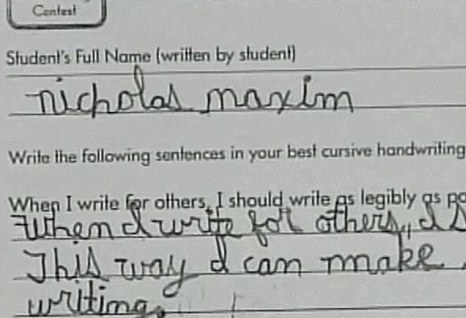 Contest
Student's Full Name (written by student)
nicholas maxim
Write the following sentences in your best cursive handwriting
When I write for others, I should write as legibly as po
When I write for others, I s
This way I can make
writing.